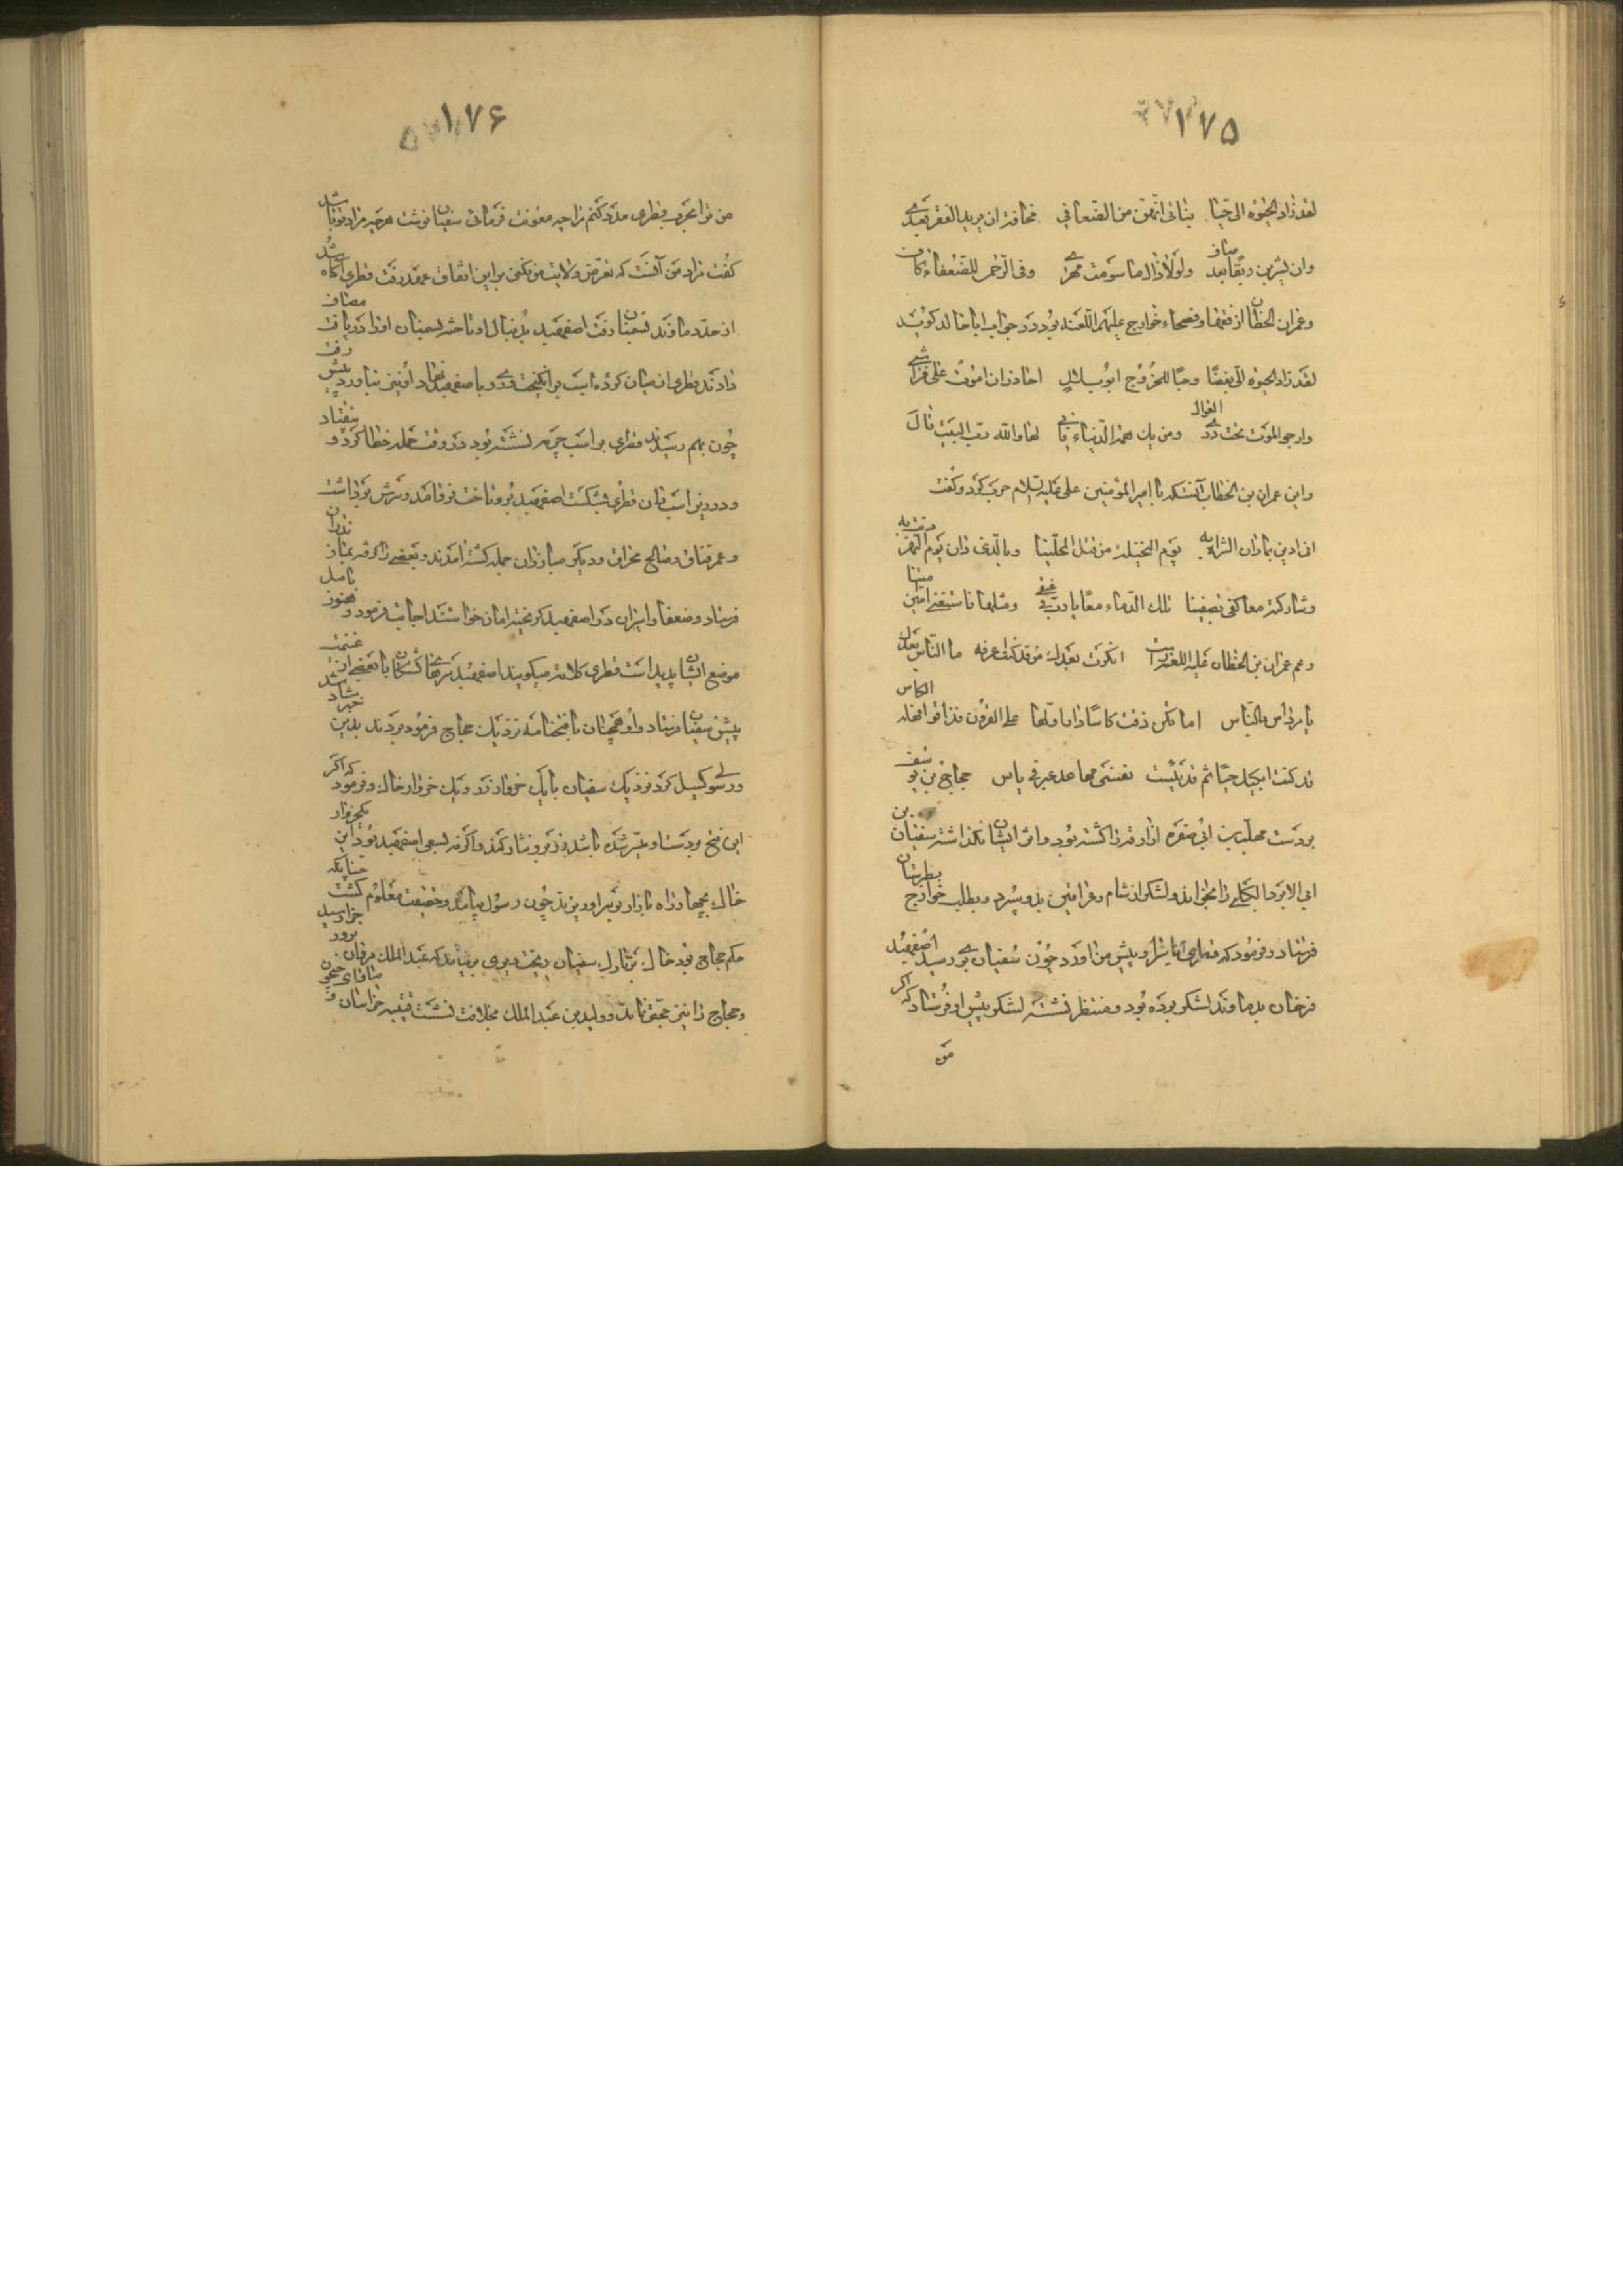 ۱۷۵
لقد زاد الحیوة الی حبا بناتی انهن من الضعاف مخافة ان یرین الفقر بعدی
وان یشربن رنقا بعد صاف ولولا ذاك ما سومت مهری وفی الرحمن للضعفاء کاف
وعمران الحطان از فقها و فصحاء خوارج علیهم اللعنه بود در جواب ابا خالد کوید
لقد زاد الحیوة الی بغضا وحبا للخروج ابو بلال احاذر ان اموت علی فراشی
وارجو الموت تحت ذری العوالی ومن یك همه الدنیا فانی لها والله رب البیت قال
واین عمران بن الحطاب آنست که با امیر المؤمنین علی علیه السلام حرب کرد و کفت
انی ادین بما دان الشراة به یوم النخیلة من قتل المحلینا وبالذی دان یوم النهر دنت به
وشارکت معا کفی بصفینا تلك الدماء معا یا رب فی عنقی ومثلها فاسقنی امین مینا
وهم عمران بن الحطان علیه اللعنه راست انکرت بعدك من قد کنت اعرفه ما الناس بعدك
یا مرداس بالناس اما تکن ذقت کاسا دار اولها علی القرون فذاقوا نهلة الکاس
قد کنت ابکیك حینا ثم قد یئست نفسی فما عبرتی یاس حجاج بن یوسف
بر دست مهلب بن ابی صفره ازارقه را کشته بود و اثر ایشان نکذاشته سفیان بن
ابی الابرد الکلبی را بخواند و لشکر از شام و عراقین بدو سپرد و بطلب خوارج بطبرستان
فرستاد و فرمود که قطری را پیش من آورد چون سفیان بری رسید اصفهبد
فرخان بدماوند لشکر برده بود و منتظر نشسته لشکر پیش او فرستاد که اکر
من
۱۷۶
من ترا بحرب قطری مدد کنم مرا چه معونت فرمائی سفیان نوشت هر چه مراد تو باشد
کفت مراد من آنست که تعرض ولایت من نکنی بر این اتفاق عهد رفت قطری آکاه شد
از حد دماوند بسمنان رفت اصفهبد بدنبال او تاخت بسمنان او را دریافت مصاف
دادند قطری از میان کرده اسب برانکیخت و روی باصفهبد نهاد او نیز پیش رفت
چون بهم رسیدند قطری بر اسب چرمه نشسته بود در وقت حمله خطا کرد و بیفتاد
و در زیر اسب ران قطری بشکست اصفهبد برو تاخت فرود آمد و سرش برداشت
و عمر فناق و صالح مخراق و دیکر مبارزان جمله کشته آمدند و بعضی را کرفته بماز ندران
فرستاد و ضعفا و اسیران در اصفهبد کریخته امان خواستند اجابت فرمود و هنوز بآمل
موضع ایشان پدید است قطری کلاته میکویند اصفهبد سرهای کشتکان با بعضی از غنیمت
پیش سفیان فرستاد و او همچنان با فتحنامه نزدیك حجاج فرمود بردند بدین خبر شاد شد
و رسولی کسیل کرد نزدیك سفیان با یك خروار زر و یك خروار خاك و فرمود که اکر
این فتح بر دست او میسر شده باشد زر برو نثار کند و اکر نه بسعی اصفهبد بود این یکخروار
خاك بچهار راه بازار بر سر او ریزند چون رسول بیامد و حقیقت معلوم کشت چنانکه
حکم حجاج بود خاك بر تارك سفیان ریخت دیری بر نیامد که عبد الملك مروان برود جزا رسید
و حجاج را نیز نماند و ولید بن عبد الملك بخلافت نشست قتیبه خراسان و